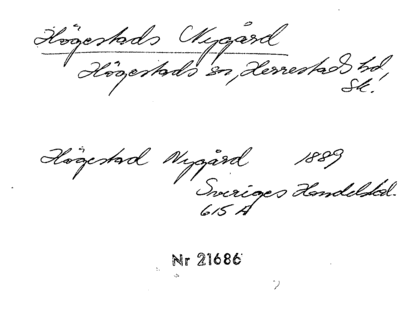 Högestads Nygård
Högestads sn, Herrestads hd,
Sk.
Högestad Nygård 1889
Sveriges Handelskal.
615 A
Nr 21686